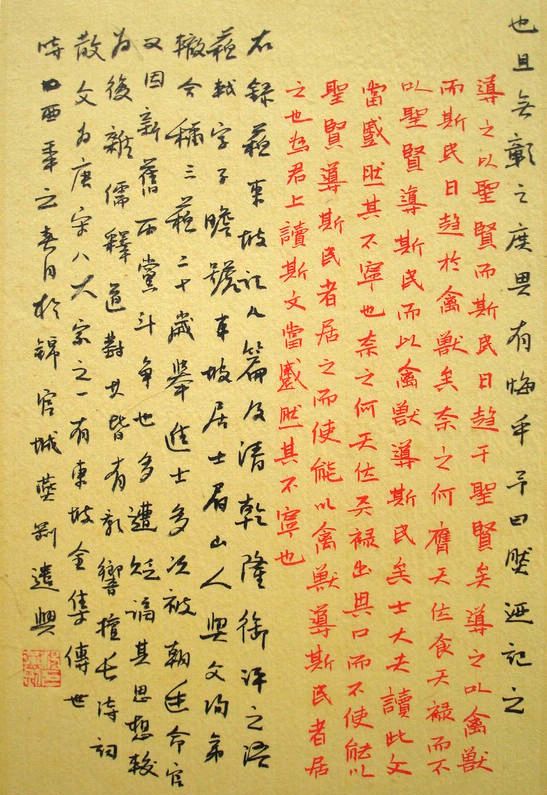 也且無彰之庶其有悔乎予曰然迺記之
導之以聖賢而斯民日趨于聖賢矣導之以禽獸
而斯民日趨於禽獸矣奈之何膺天位食天祿而不
以聖賢導斯民而以禽獸導斯民矣士大夫讀此文
當蹙然其不寧也奈之何天位天祿出其口而不使能以
聖賢導斯民者居之而使能以禽獸導斯民者居
之也為君上讀斯文當蹙然其不寧也
右錄蘇東坡記九篇及清乾隆御評之語
蘇軾字子瞻號東坡居士眉山人與父洵弟
轍合稱三蘇二十歲舉進士多次被朝廷命官
又因新舊兩黨斗爭也多遭貶謫其思想較
為複雜儒釋道對其皆有影響擅長詩詞
散文為唐宋八大家之一有東坡全集傳世
時酉年之春月於錦官城遣興